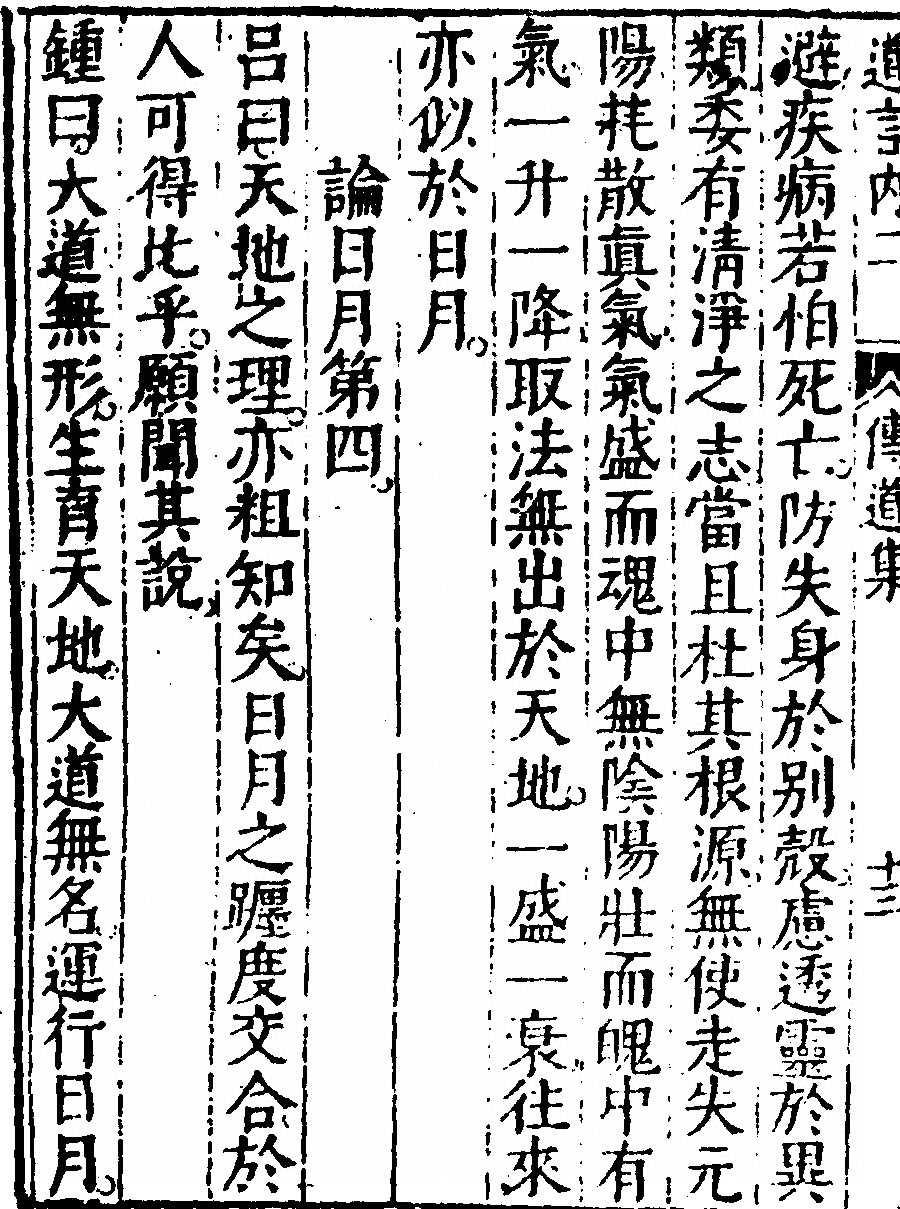 道言內二　傳道集　十三
避疾病若怕死亡防失身於別殼慮透靈於異
類委有清淨之志當且杜其根源無使走失元
陽耗散眞氣氣盛而魂中無陰陽壯而魄中有
氣一升一降取法無出於天地一盛一衰往來
亦似於日月
論日月第四
呂曰天地之理亦粗知矣日月之躔度交合於
人可得比乎願聞其說
鍾曰大道無形生育天地大道無名運行日月